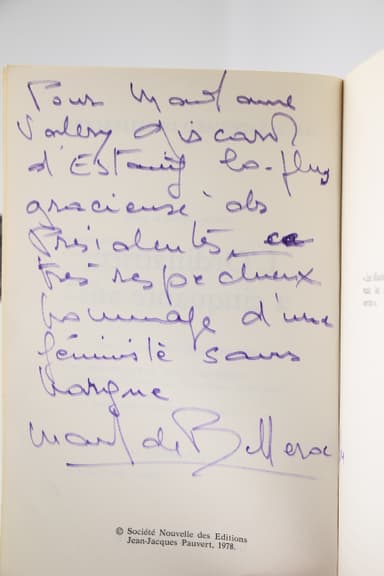 Pour Madame
Valery Giscard
d'Estaing la plus
gracieuse des
Présidentes, ce
très respectueux
hommage d'une
féministe sans
hargne
de
© Société Nouvelle des Editions
Jean-Jacques Pauvert, 1978.